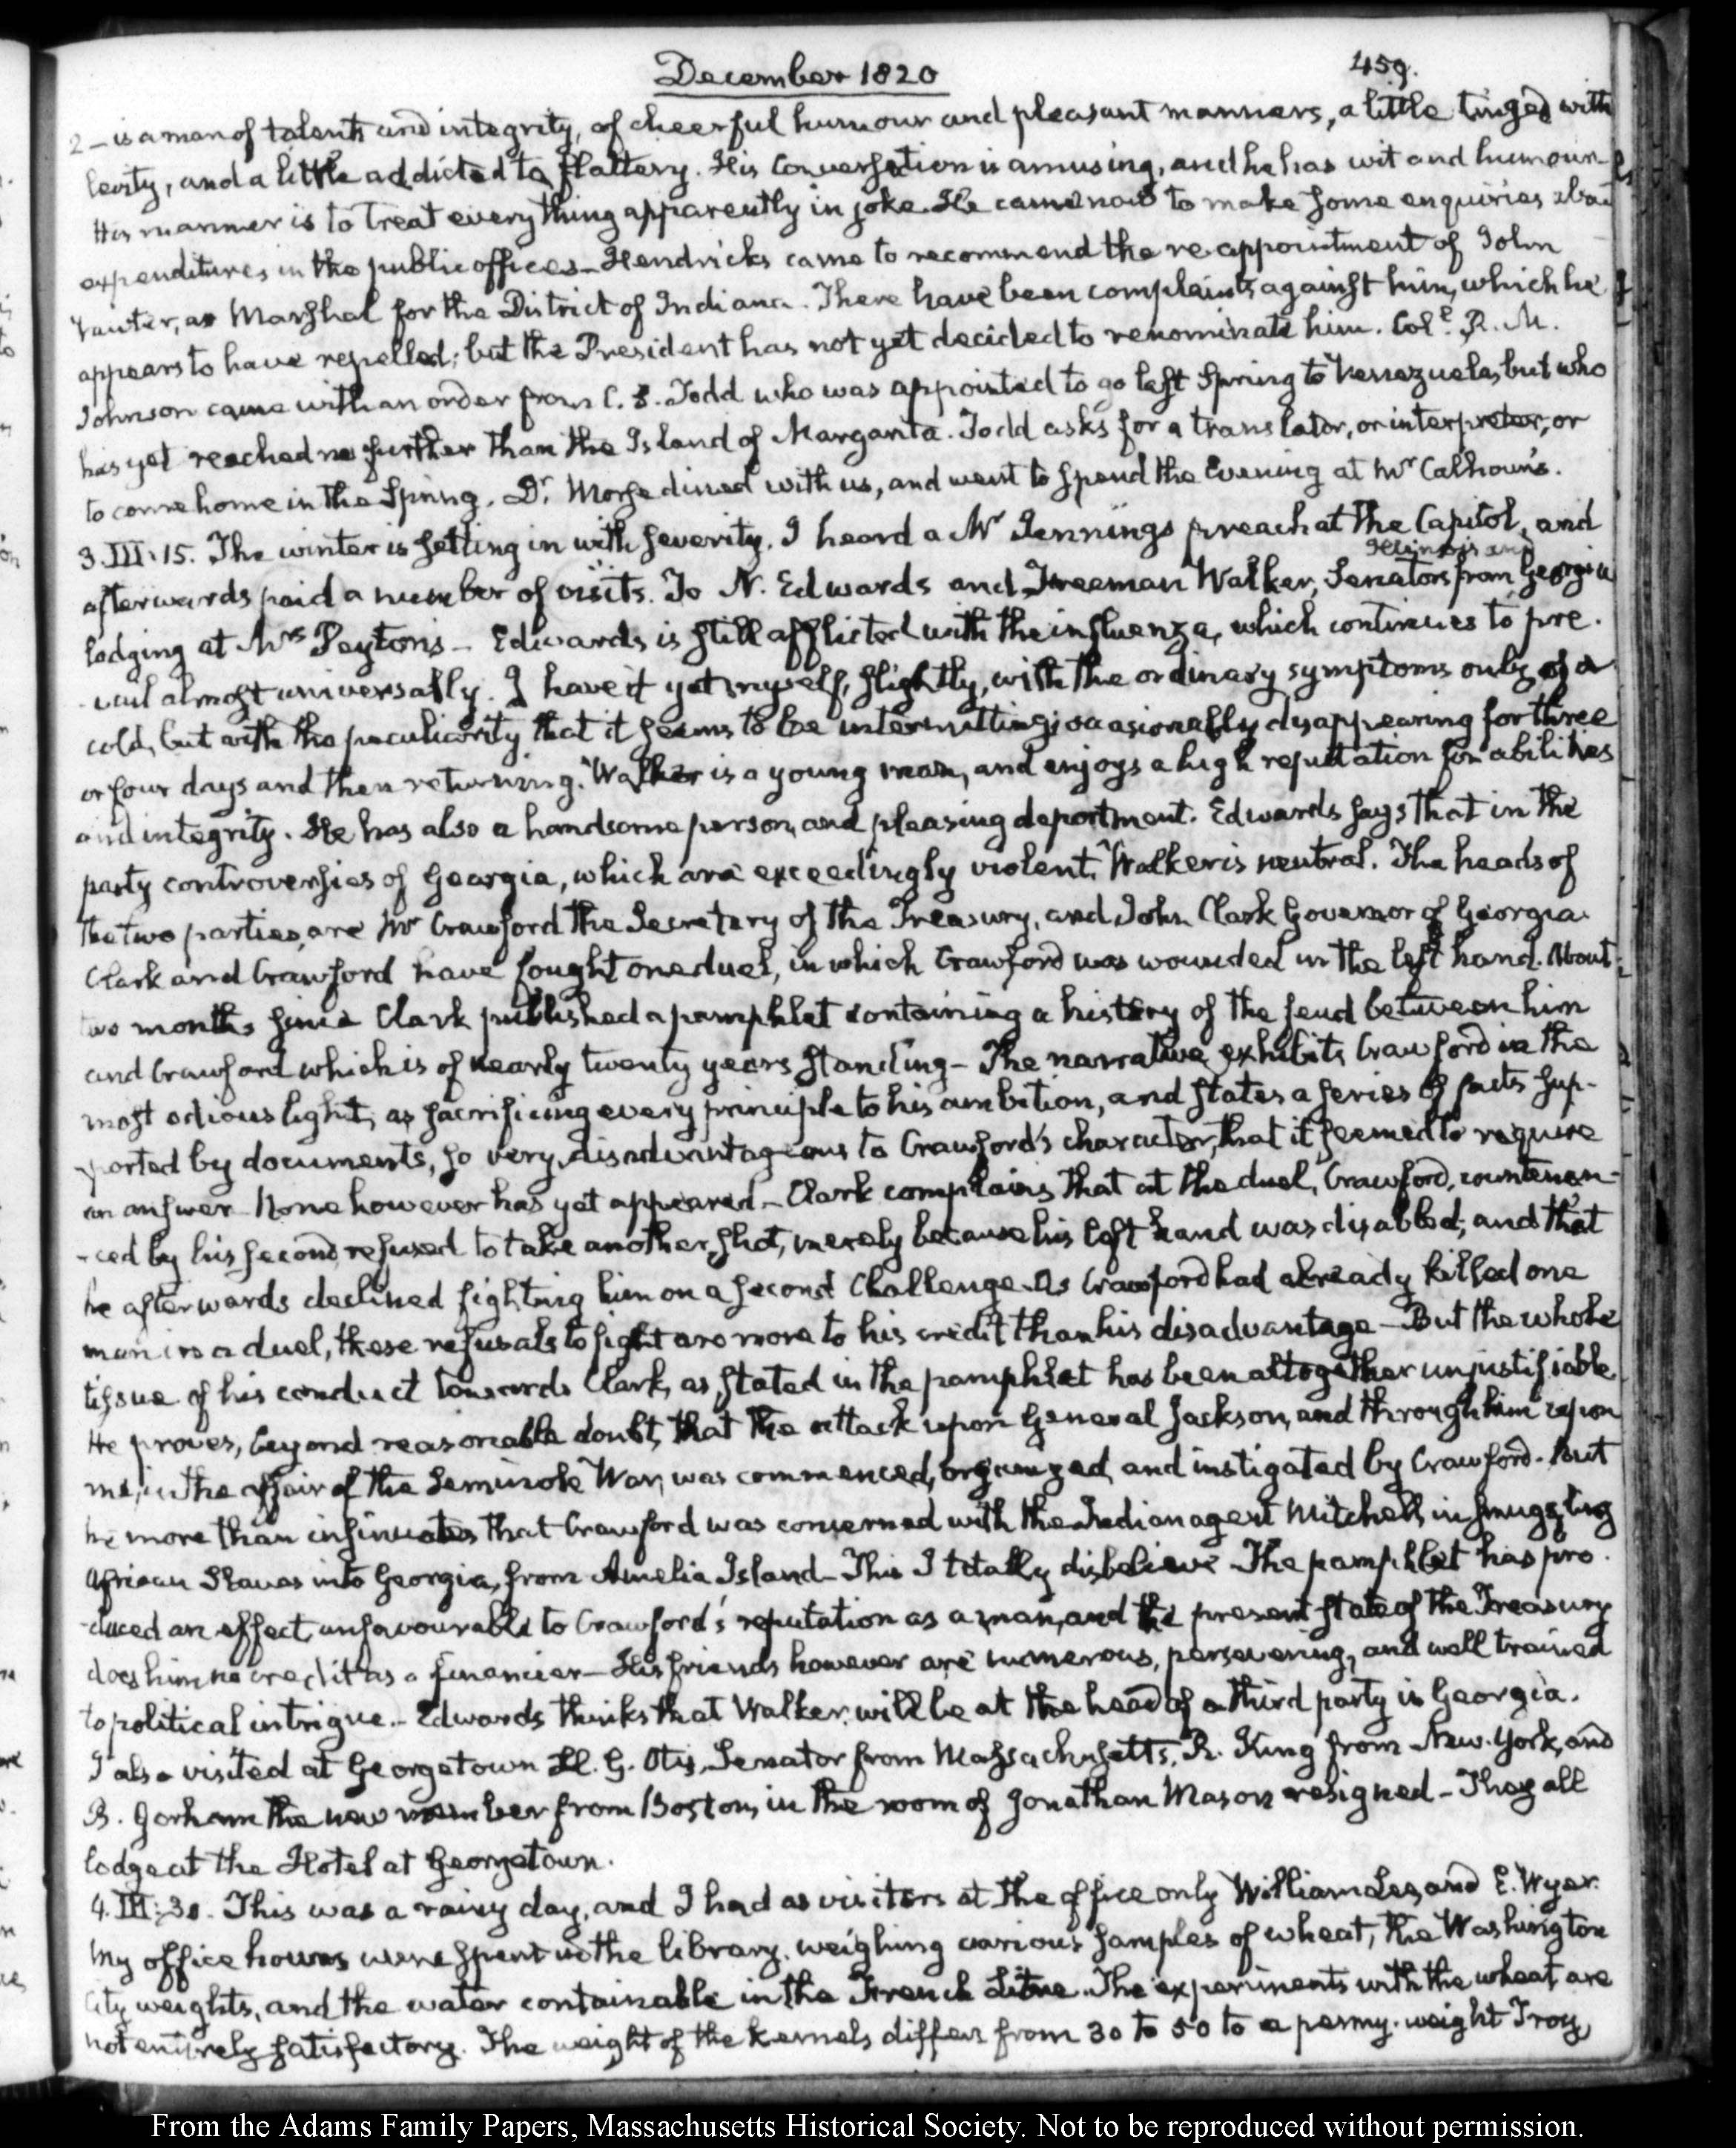 December 1820
459.
2 — is a man of talents and integrity, of cheerful humour and pleasant manners, a little tinged with
levity, and a little addicted to flattery. His Conversation is amusing, and he has wit and humour.
His manner is to treat every thing apparently in joke. He came now to make some enquiries about
expenditures in the public offices — Hendricks came to recommend the re-appointment of John
Vawter, as Marshal for the District of Indiana. There have been complaints against him, which he
appears to have repelled; but the President has not yet decided to renominate him. Col.l R. M.
Johnson came with an order from C. S. Todd who was appointed to go last Spring to Venezuela, but who
has yet reached no further than the Island of Margarita. Todd asks for a translator, or interpreter, or
to come home in the Spring. Dr. Morse dined with us, and went to spend the Evening at Mr Calhoun's.
3. III:15. The winter is setting in with severity. I heard a Mr Jennings preach at the Capitol, and
afterwards paid a number of visits. To N. Edwards and Freeman Walker, Senators from Illinois and Georgia
lodging at Mrs Peyton's — Edwards is still afflicted with the influenza, which continues to pre-
-vail almost universally. I have it yet myself, slightly, with the ordinary symptoms only of a
cold, but with the peculiarity that it seems to be intermitting; occasionally disappearing for three
or four days and then returning. Walker is a young man, and enjoys a high reputation for abilities
and integrity. He has also a handsome person, and pleasing deportment. Edwards says that in the
party controversies of Georgia, which are exceedingly violent, Walker is neutral. The heads of
the two parties, are Mr Crawford the Secretary of the Treasury, and John Clark Governor of Georgia.
Clark and Crawford have fought one duel, in which Crawford was wounded in the left hand. About
two months since Clark published a pamphlet containing a history of the feud between him
and Crawford which is of nearly twenty years standing — The narrative exhibits Crawford in the
most odious light, as sacrificing every principle to his ambition, and states a series of facts sup-
-ported by documents, so very disadvantageous to Crawford's character, that it seemed to require
an answer. None however has yet appeared — Clark complains that at the duel, Crawford, countenan-
-ced by his second refused to take another shot, merely because his left hand was disabled; and that
he afterwards declined fighting him on a second Challenge. As Crawford had already killed one
man in a duel, these refusals to fight are more to his credit than his disadvantage — But the whole
tissue of his conduct towards Clark, as stated in the pamphlet has been altogether unjustifiable.
He proves, beyond reasonable doubt, that the attack upon General Jackson, and through him upon
me, in the affair of the Seminole War, was commenced, organized, and instigated by Crawford. But
he more than insinuates that Crawford was concerned with the Indian agent Mitchell, in smuggling
African Slaves into Georgia, from Amelia Island — This I totally disbelieve — The pamphlet has pro-
-duced an effect unfavourable to Crawford's reputation as a man, and the present state of the Treasury
does him no credit as a financier — His friends however are numerous, persevering, and well trained
to political intrigue. — Edwards thinks that Walker will be at the head of a third party in Georgia.
I also visited at Georgetown H. G. Otis, Senator from Massachusetts, R. King from New-York, and
B. Gorham the new member from Boston, in the room of Jonathan Mason resigned — They all
lodge at the Hotel at Georgetown.
4. III:30. This was a rainy day, and I had as visitors at the office only William Lee, and E. Wyer.
My office hours were spent in the library, weighing various samples of wheat, the Washington
City weights, and the water containable in the French Litre. The experiments with the wheat are
not entirely satisfactory. The weight of the kernels differs from 30 to 50 to a penny-weight Troy,
From the Adams Family Papers, Massachusetts Historical Society. Not to be reproduced without permission.